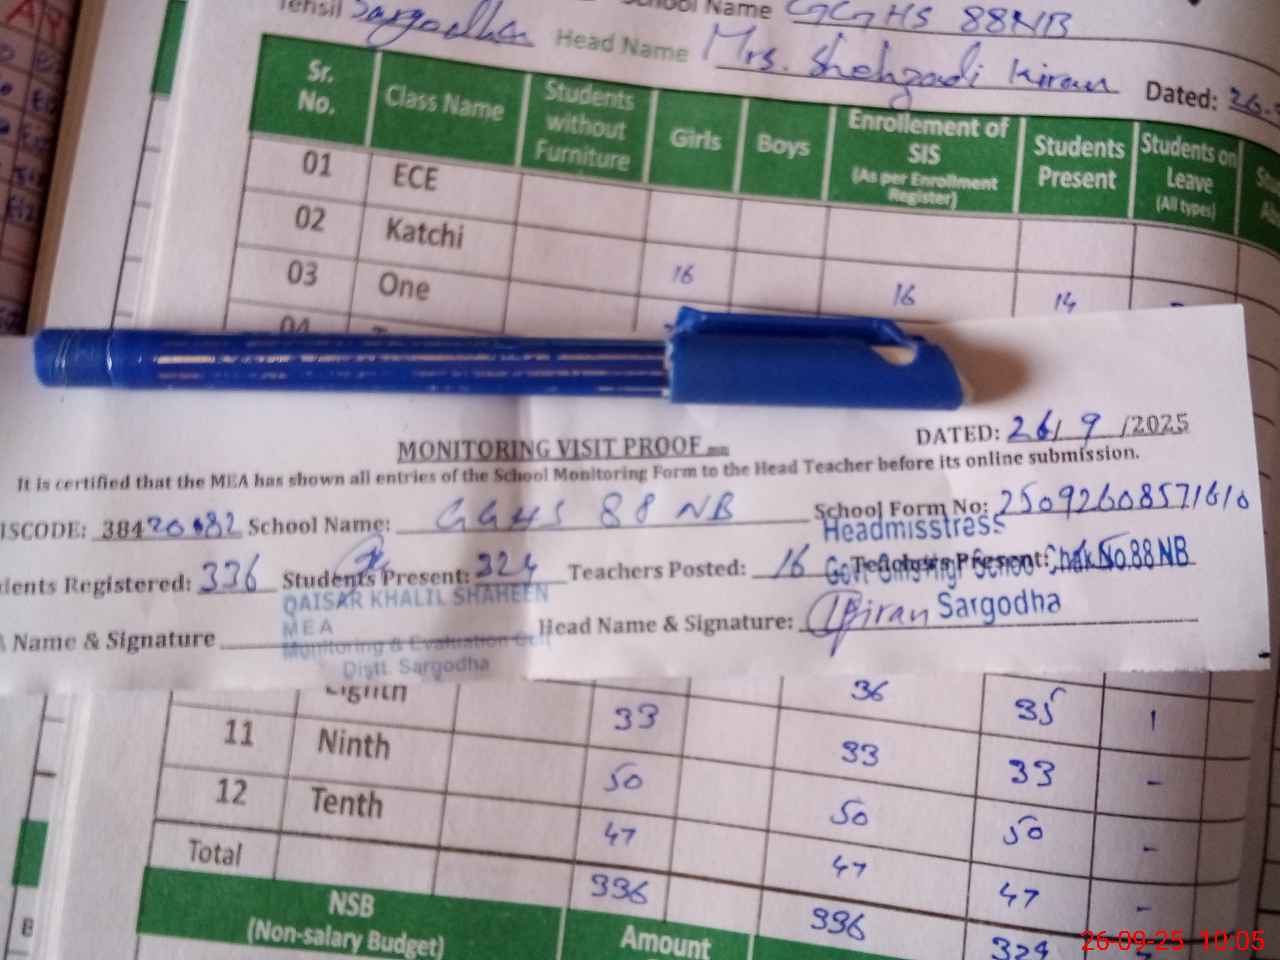 Tehsil Sargodha School Name GGHS 88NB
Head Name Mrs. Shehzadi Kiran Dated: 26.
Sr. No. Class Name Students without Furniture Girls Boys Enrollement of SIS (As per Enrollment Register) Students Present Students on Leave (All types)
01 ECE
02 Katchi
03 One 16 16 14
04
MONITORING VISIT PROOF DATED: 26/9/2025
It is certified that the MEA has shown all entries of the School Monitoring Form to the Head Teacher before its online submission.
ISCODE: 38420082 School Name: GGHS 88 NB School Form No: 25092608571610
Headmisstress
dents Registered: 336 Students Present: 324 Teachers Posted: 16 Teachers Present:
Govt Girls High School Chak No.88 NB
Sargodha
Name & Signature Head Name & Signature: Kiran
QAISAR KHALIL SHAHEEN
MEA
Monitoring & Evaluation Cell
Distt. Sargodha
Eighth 33 36 35 1
11 Ninth 50 33 33 -
12 Tenth 47 50 50 -
Total 336 47 47 -
336 324
NSB
(Non-salary Budget) Amount
26-09-25 10:05